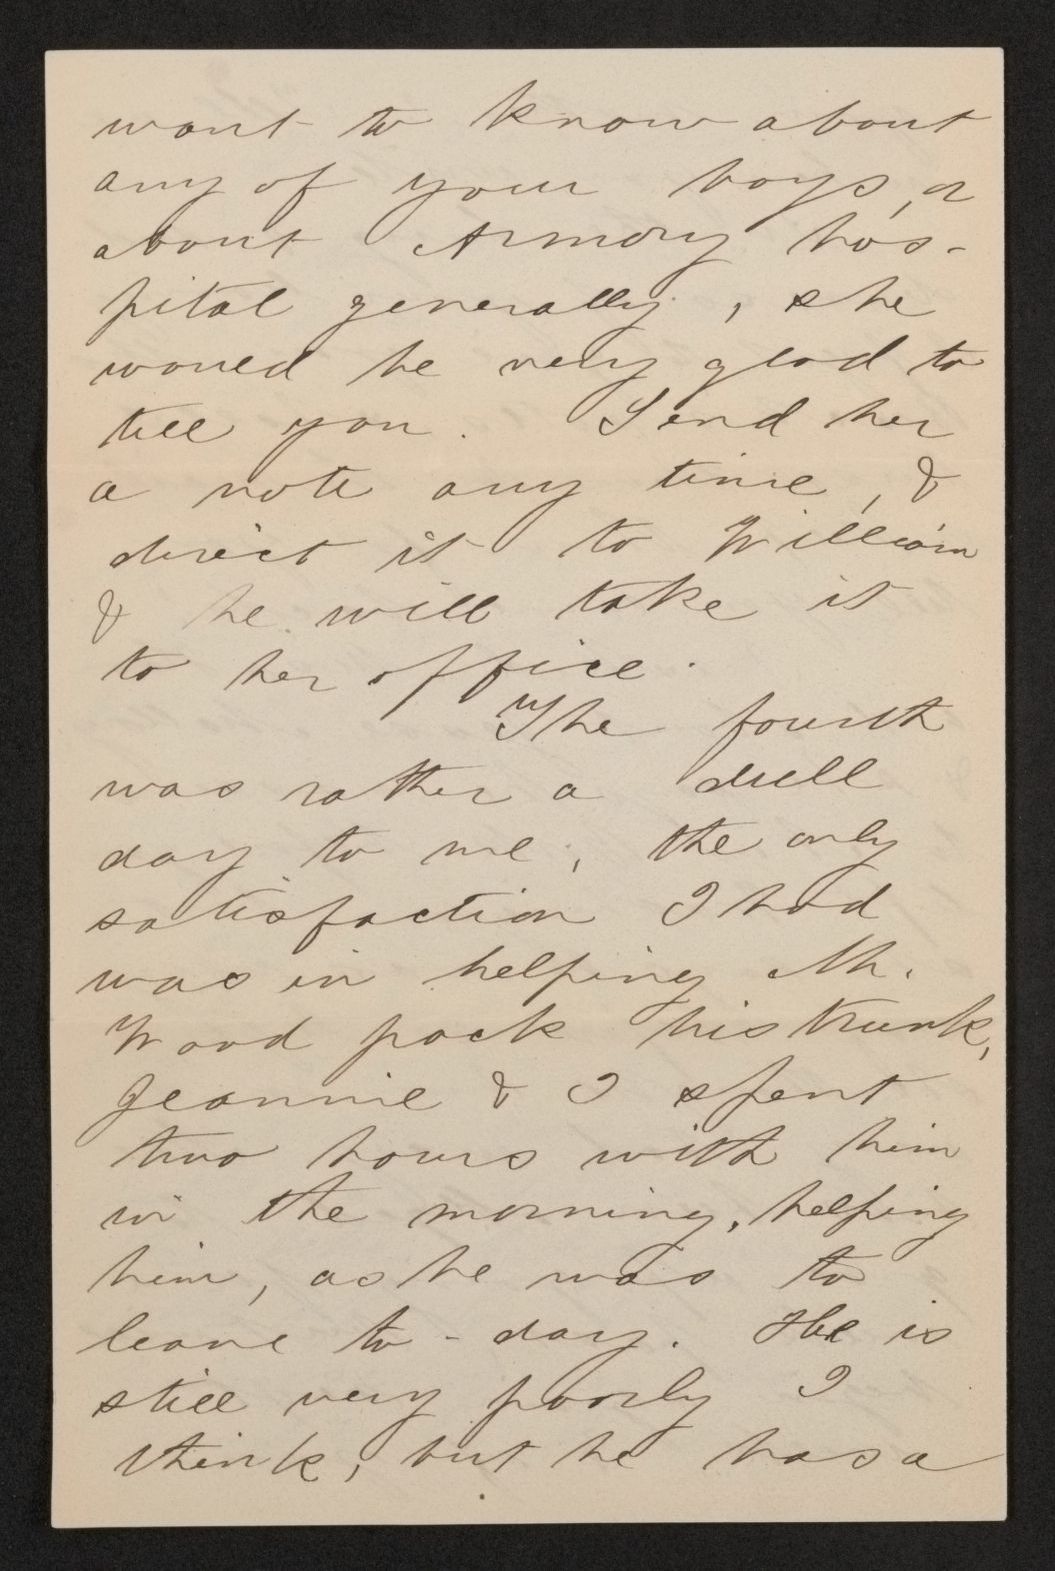 want to know about
any of your boys, or
about Armory hos-
pital generally, she
would be very glad to
tell you. Send her
a note any time, &
direct it to William
& he will take it
to her office.
The fourth
was rather a dull
day to me, the only
satisfaction I had
was in helping Mr.
Wood pack his trunk,
Jeannie & I spent
two hours with him
in the morning, helping
him, as he was to
leave to-day. He is
still very poorly I
think, but he has a